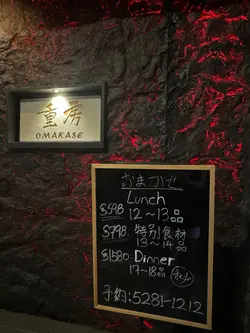 重房
OMAKASE
おまかせ
Lunch
$598 12～13品
$798 特別食材
13～14品
$1580 Dinner
17～18品
予約:5281-1212